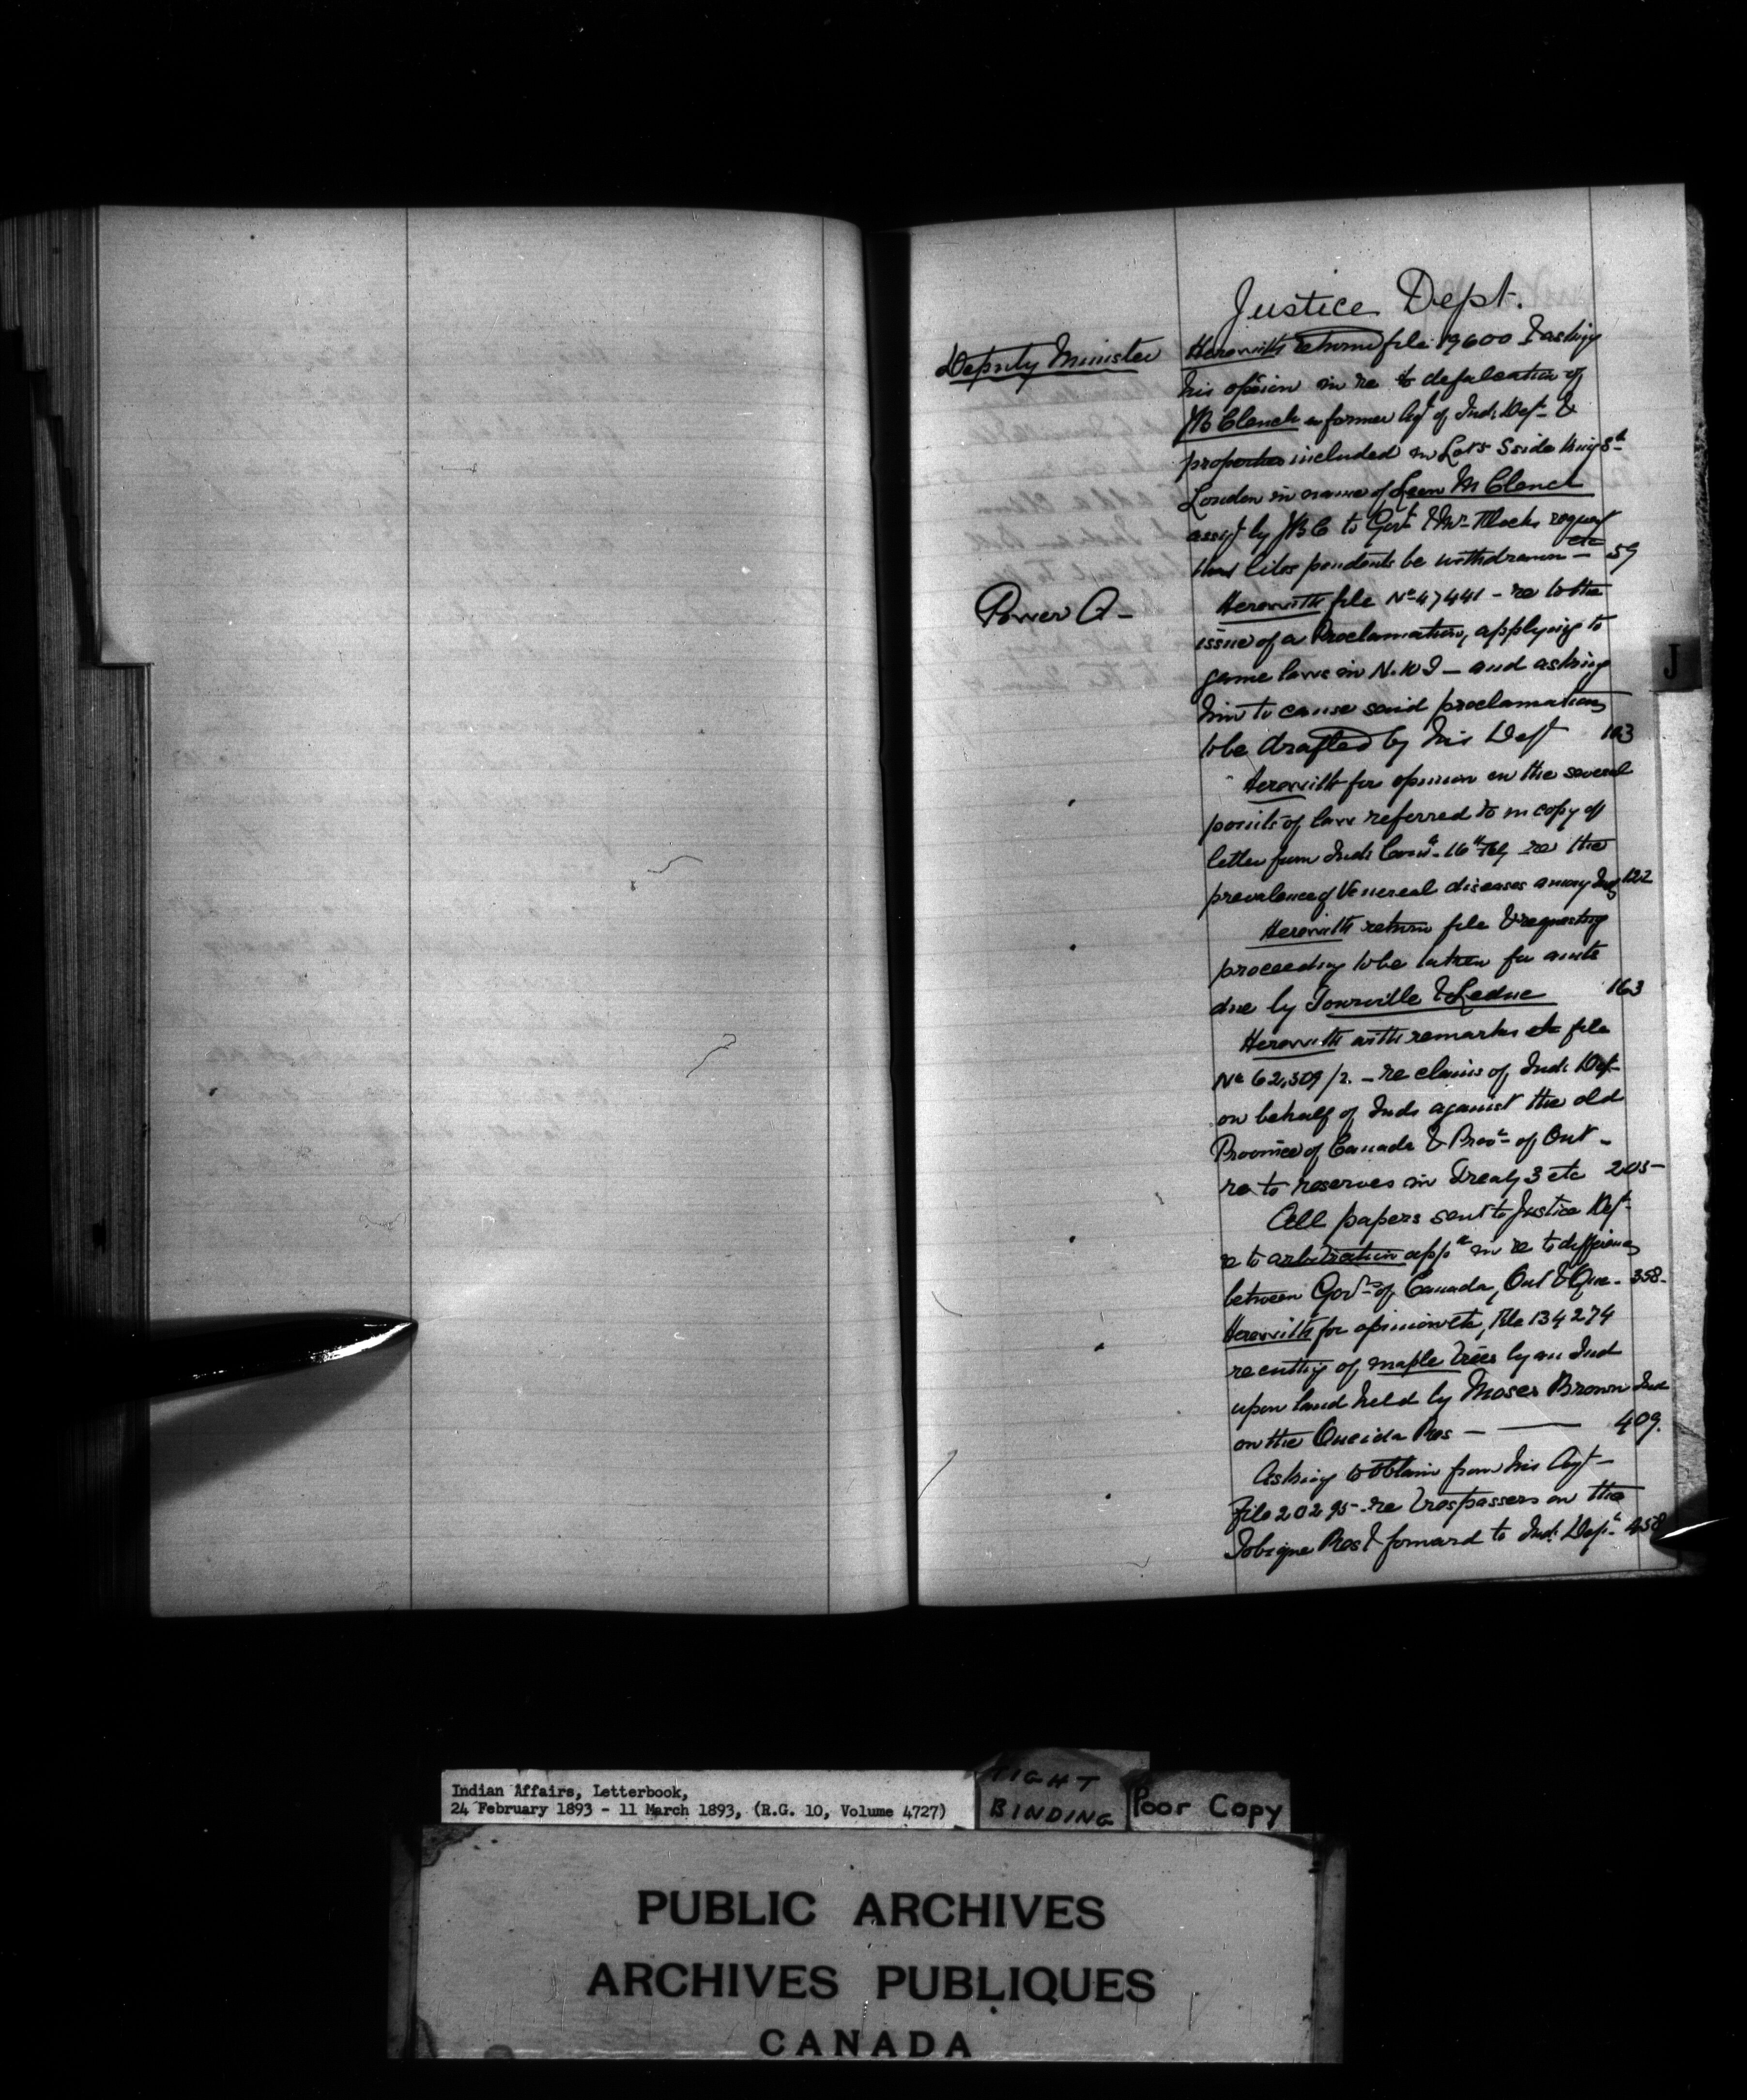 Justice Dept.
Deputy Minister
Herewith return file 19600 & asking
his opinion in re to defalcation of
JB Clench a former Agt of Ind. Dept &
properties included in Lots S side King St
London in name of Leon M Clench
assigt by JBC to Govt & Mr. Meeks request
that lites pendents be withdrawn — etc 59
Power A -
Herewith file No 47441 - re to the
issue of a Proclamation, applying to
game laws in N.W.T - and asking
him to cause said proclamation
to be drafted by his Dept 103
Herewith for opinion on the several
points of law referred to in copy of
letter from Ind. Comr. 16th re the
prevalence of Venereal diseases among Inds 122
Herewith return file & requesting
proceeding to be taken for amts
due by Tourville & Leduc 163
Herewith with remarks etc file
No 62,509/2. - re claims of Ind. Dept
on behalf of Inds against the old
Province of Canada & Prove of Ont -
re to reserves in Treaty 3 etc 205-
All papers sent to Justice Dept.
re to arbitration app in re to differences
between Govts of Canada, Ont & Que. 358-
Herewith for opinion etc, File 134274
re cutting of maple trees by an Ind
upon land held by Moses Brown Ind
on the Oneida Res — 409.
Asking to obtain from his Agt -
File 20295 - re trespassers on the
Tobique Res & forward to Ind. Dept 458
J
Indian Affairs, Letterbook,
24 February 1893 - 11 March 1893, (R.G. 10, Volume 4727)
TIGHT
BINDING
Poor Copy
PUBLIC ARCHIVES
ARCHIVES PUBLIQUES
CANADA